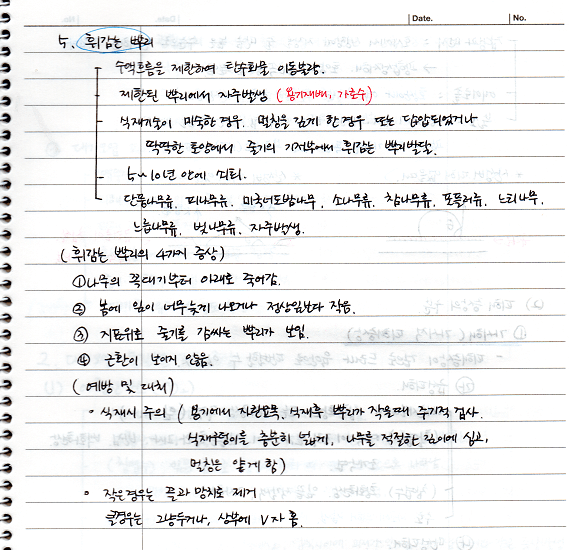 Date.
No.
5. 휘감는 뿌리
수액흐름을 제한하여 탄수화물 이동불량.
제한된 뿌리에서 자주발생 (용기재배, 가로수)
식재기술이 미숙한 경우. 멀칭을 깊게 한 경우 또는 답압되었거나
딱딱한 토양에서 줄기의 기저부에서 휘감는 뿌리발달.
5~10년 안에 쇠퇴.
단풍나무류, 피나무류, 미국너도밤나무, 소나무류, 참나무류, 포플러류, 느티나무,
느릅나무류, 벚나무류, 자주발생.
(휘감는 뿌리의 4가지 증상)
① 나무의 꼭대기부터 아래로 죽어감.
② 봄에 잎이 너무늦게 나오거나 정상잎보다 작음.
③ 지표위로 줄기를 감싸는 뿌리가 보임.
④ 근원이 보이지 않음.
(예방 및 대처)
• 식재시 주의 (용기에서 자란묘목, 식재후 뿌리가 작을때 주기적 검사.
식재구덩이를 충분히 넓게, 나무를 적절한 깊이에 심고,
멀칭은 얇게 함)
• 작은경우는 끌과 망치로 제거
큰경우는 그냥두거나, 상부에 V자 홈.